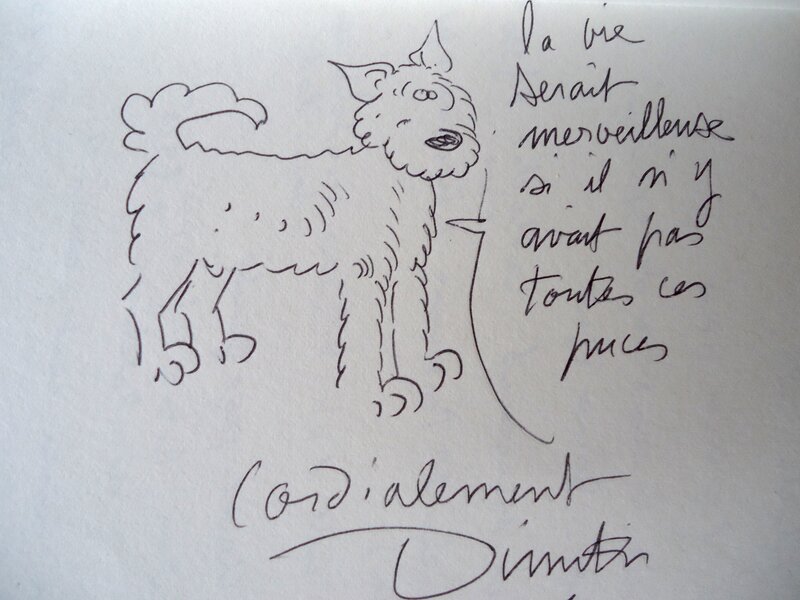 la vie
serait
merveilleuse
si il n'y
avait pas
toutes ces
puces
Cordialement
Dimitri